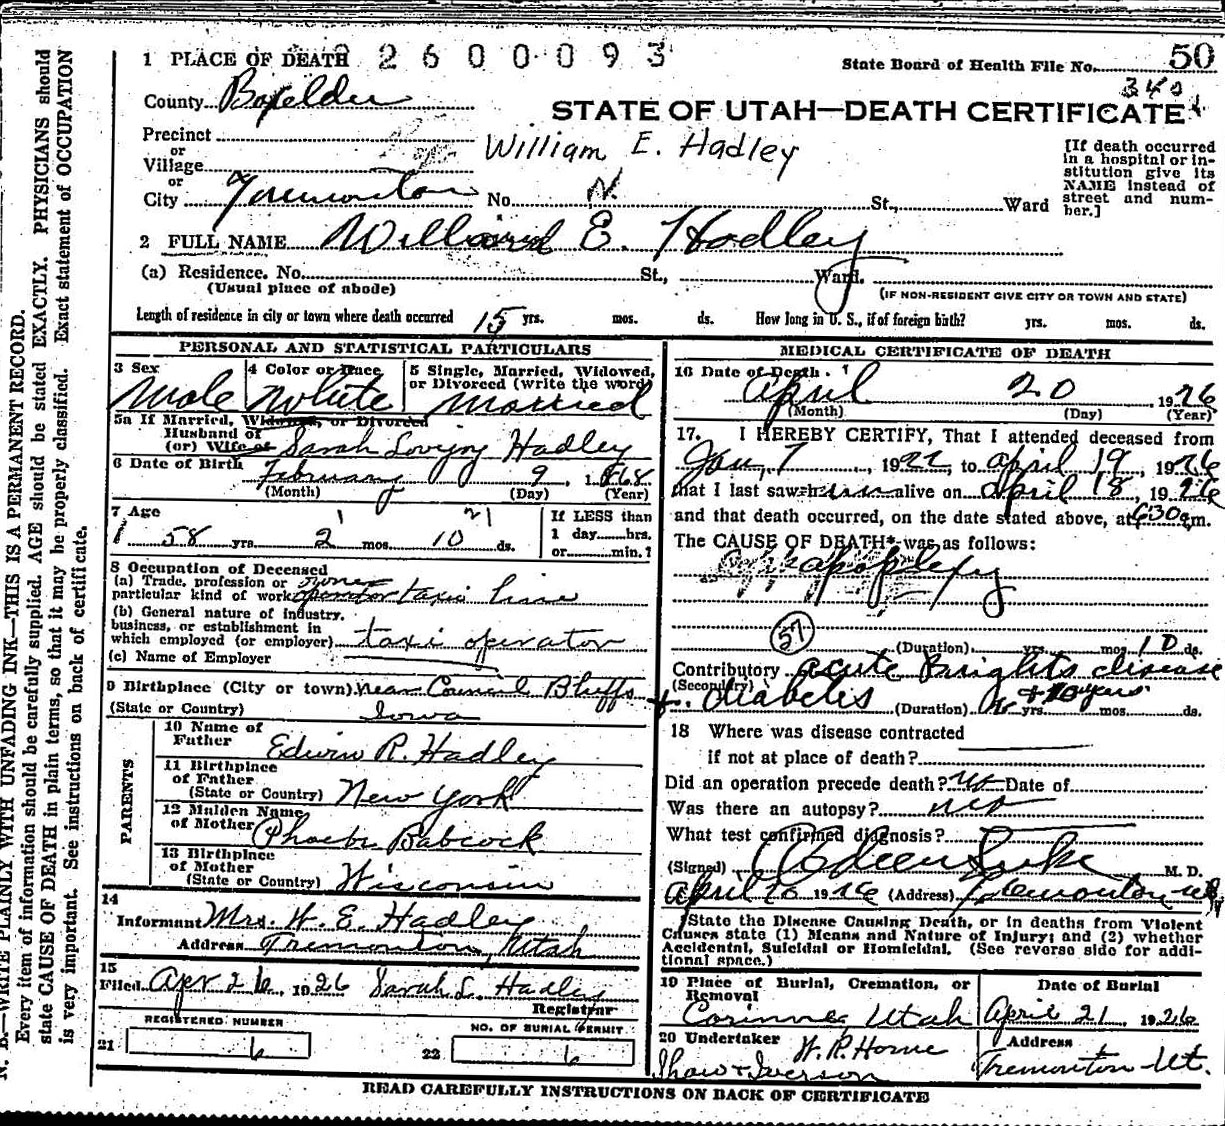 N. B.—WRITE PLAINLY WITH UNFADING INK—THIS IS A PERMANENT RECORD.
Every item of information should be carefully supplied. AGE should be stated EXACTLY. PHYSICIANS should
state CAUSE OF DEATH in plain terms, so that it may be properly classified. Exact statement of OCCUPATION
is very important. See instructions on back of certificate.
1 PLACE OF DEATH 2600093
State Board of Health File No. 50
County Boxelder
340
STATE OF UTAH—DEATH CERTIFICATE
Precinct
or
Village
or
City Tremonton No. N. St., Ward
William E. Hadley
[If death occurred
in a hospital or in-
stitution give its
NAME instead of
street and num-
ber.]
2 FULL NAME Willard E. Hadley
(a) Residence. No. St., Ward.
(Usual place of abode)
(IF NON-RESIDENT GIVE CITY OR TOWN AND STATE)
Length of residence in city or town where death occurred 15 yrs. mos. ds. How long in U. S., if of foreign birth? yrs. mos. ds.
PERSONAL AND STATISTICAL PARTICULARS
3 Sex
Male
4 Color or Race
White
5 Single, Married, Widowed,
or Divorced (write the word)
Married
5a If Married, Widowed, or Divorced
Husband of
(or) Wife of Sarah Lovejoy Hadley
6 Date of Birth February 9, 1868
(Month) (Day) (Year)
7 Age
58 yrs. 2 mos. 10 ds.
If LESS than
1 day hrs.
or min.?
8 Occupation of Deceased
(a) Trade, profession or owner
particular kind of work operator taxie line
(b) General nature of industry,
business, or establishment in
which employed (or employer) taxi operator
(c) Name of Employer
9 Birthplace (City or town) Near Council Bluffs
(State or Country) Iowa
PARENTS
10 Name of
Father Edwin R. Hadley
11 Birthplace
of Father
(State or Country) New York
12 Maiden Name
of Mother Phoebe Babcock
13 Birthplace
of Mother
(State or Country) Wisconsin
14
Informant Mrs. W. E. Hadley
Address Tremonton, Utah
15
Filed Apr 26, 1926 Sarah L. Hadley
Registrar
REGISTERED NUMBER
21 6
NO. OF BURIAL PERMIT
22 6
MEDICAL CERTIFICATE OF DEATH
16 Date of Death
April 20 1926
(Month) (Day) (Year)
17. I HEREBY CERTIFY, That I attended deceased from
Jan, 7, 1922, to April 19, 1926
that I last saw him alive on April 18, 1926
and that death occurred, on the date stated above, at 630 am.
The CAUSE OF DEATH* was as follows:
apoplexy
57
(Duration) yrs. mos. 10 ds.
Contributory acute Brights disease
(Secondary) + diabetis (Duration) yrs. mos. ds.
18 Where was disease contracted
if not at place of death?
Did an operation precede death? no Date of
Was there an autopsy? no
What test confirmed diagnosis?
(Signed) M. D.
April 20 1926 (Address) Tremonton Ut
*State the Disease Causing Death, or in deaths from Violent
Causes state (1) Means and Nature of Injury; and (2) whether
Accidental, Suicidal or Homicidal. (See reverse side for addi-
tional space.)
19 Place of Burial, Cremation, or
Removal
Corinne, Utah
Date of Burial
April 21 1926
20 Undertaker W. R. Horne
Shaw & Iverson
Address
Tremonton Ut.
READ CAREFULLY INSTRUCTIONS ON BACK OF CERTIFICATE